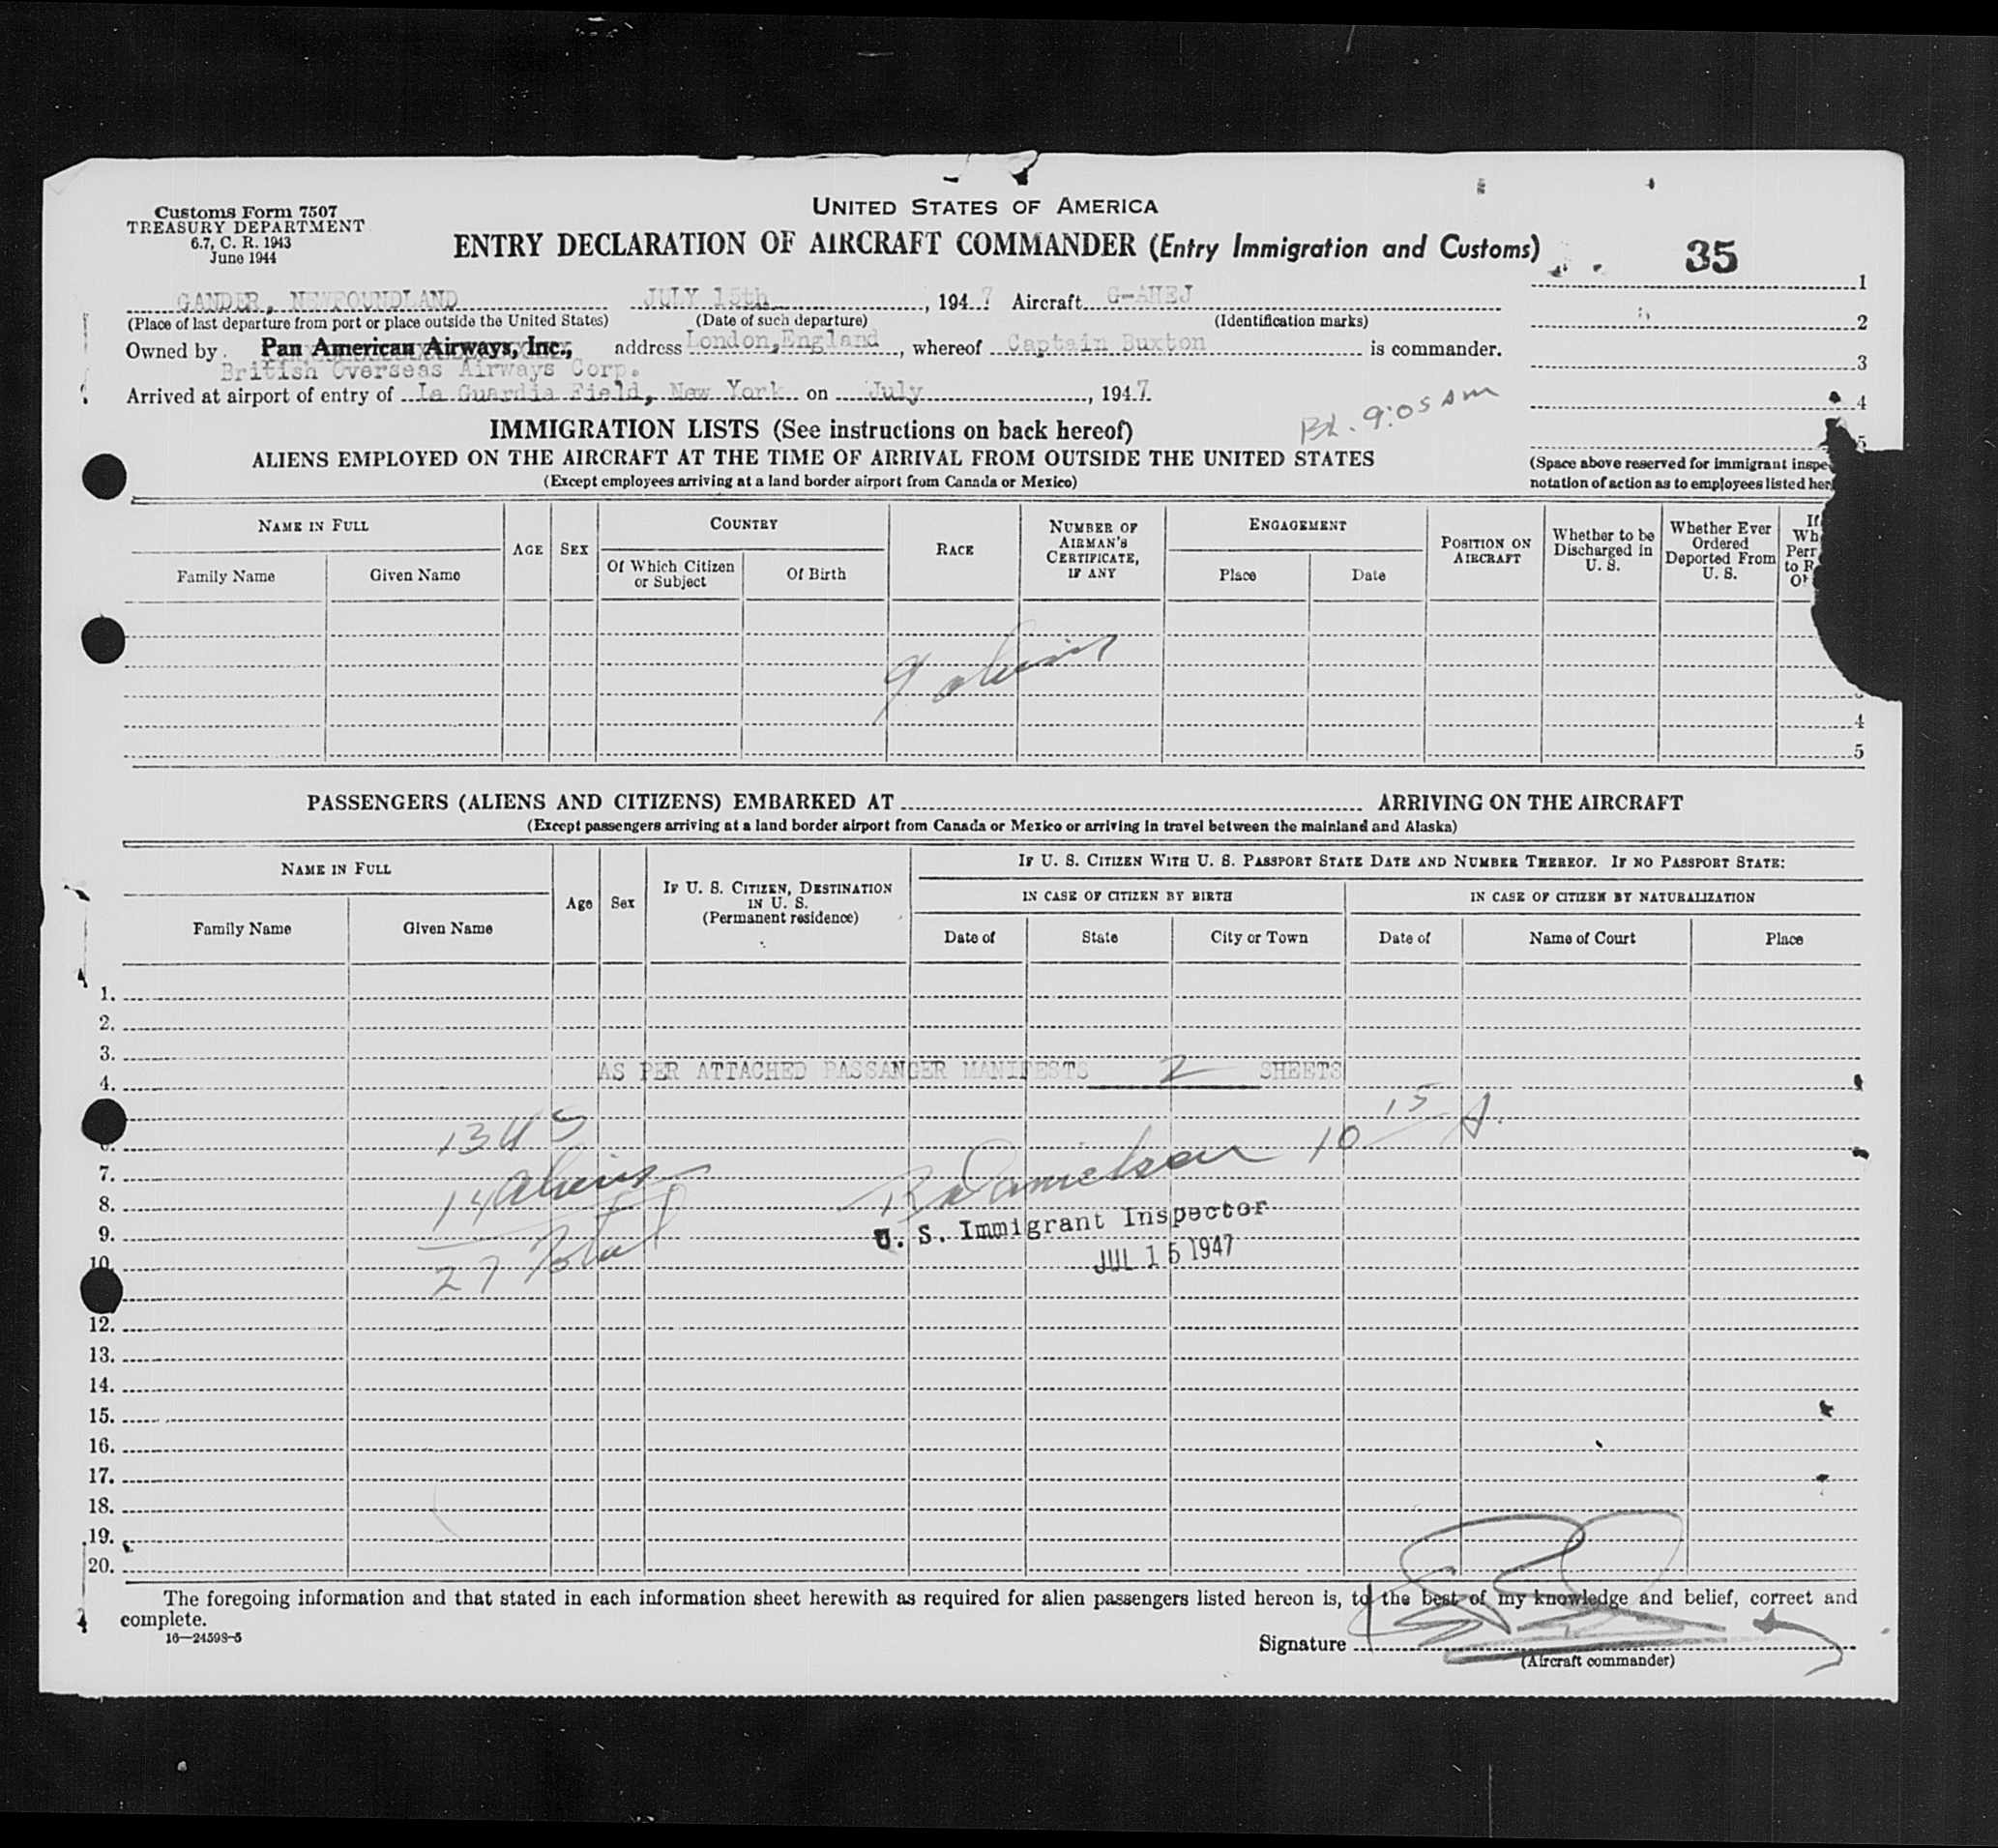 Customs Form 7507
TREASURY DEPARTMENT
6.7, C. R. 1943
June 1944
UNITED STATES OF AMERICA
ENTRY DECLARATION OF AIRCRAFT COMMANDER (Entry Immigration and Customs)
35
GANDER, NEWFOUNDLAND JULY 15th, 1947 Aircraft G-AHEJ
(Place of last departure from port or place outside the United States) (Date of such departure) (Identification marks)
Owned by Pan American Airways, Inc., address London, England, whereof Captain Buxton is commander.
British Overseas Airways Corp.
Arrived at airport of entry of La Guardia Field, New York on July, 1947.
1
2
3
4
5
BL. 9:05 AM
IMMIGRATION LISTS (See instructions on back hereof)
ALIENS EMPLOYED ON THE AIRCRAFT AT THE TIME OF ARRIVAL FROM OUTSIDE THE UNITED STATES
(Except employees arriving at a land border airport from Canada or Mexico)
(Space above reserved for immigrant inspe
notation of action as to employees listed her
NAME IN FULL
Family Name
Given Name
AGE
SEX
COUNTRY
Of Which Citizen or Subject
Of Birth
RACE
NUMBER OF AIRMAN'S CERTIFICATE, IF ANY
ENGAGEMENT
Place
Date
POSITION ON AIRCRAFT
Whether to be Discharged in U. S.
Whether Ever Ordered Deported From U. S.
If
Wh
Perr
to R
Of
9 aliens
4
5
PASSENGERS (ALIENS AND CITIZENS) EMBARKED AT ARRIVING ON THE AIRCRAFT
(Except passengers arriving at a land border airport from Canada or Mexico or arriving in travel between the mainland and Alaska)
NAME IN FULL
Family Name
Given Name
Age
Sex
IF U. S. CITIZEN, DESTINATION IN U. S.
(Permanent residence)
IF U. S. CITIZEN WITH U. S. PASSPORT STATE DATE AND NUMBER THEREOF. IF NO PASSPORT STATE:
IN CASE OF CITIZEN BY BIRTH
IN CASE OF CITIZEN BY NATURALIZATION
Date of
State
City or Town
Date of
Name of Court
Place
1.
2.
3.
AS PER ATTACHED PASSANGER MANIFESTS 2 SHEETS
4.
13 US
6.
7.
14 aliens
8.
9.
27 Total
10.
Danielson 10 15 A.
U. S. Immigrant Inspector
JUL 15 1947
12.
13.
14.
15.
16.
17.
18.
19.
20.
The foregoing information and that stated in each information sheet herewith as required for alien passengers listed hereon is, to the best of my knowledge and belief, correct and
complete.
16—24598-5
Signature
(Aircraft commander)